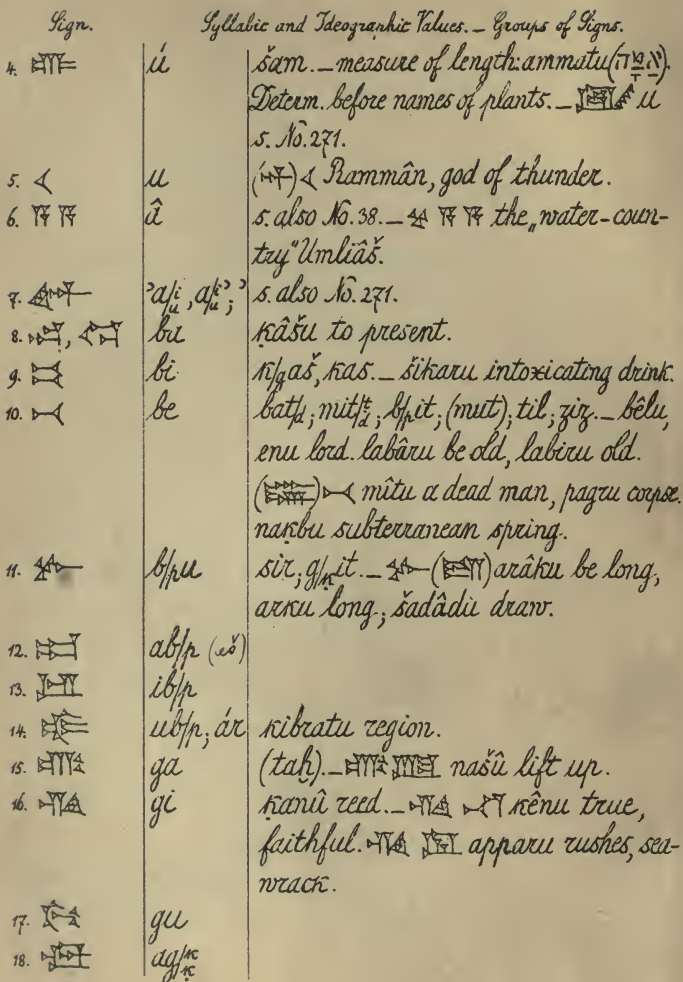 Sign. Syllabic and Ideographic Values. _ Groups of Signs.
4. 𒌑 ú šam. _ measure of length: ammatu (אַמָּה).
Determ. before names of plants. _ ú
s. No. 271.
5. 𒌋 u (𒀭) 𒌋 Rammân, god of thunder.
6. 𒀀 𒀀 â s. also No. 38. _ 𒆳 𒀀 𒀀 the „water-coun-
try" Umliâš.
7. 𒀪 ʾa/i/u, a/i/uʾ; ʾ s. also No. 271.
8. 𒁀, 𒁀 ba ḳâšu to present.
9. 𒁉 bi k/gaš, kas. _ šikaru intoxicating drink.
10. 𒁁 be bat/d; mit/ṭ/d; b/pit; (mut); til; ziz. _ bêlu,
enu lord. labâru be old, labiru old.
() 𒁁 mîtu a dead man, pagru corpse.
naḳbu subterranean spring.
11. 𒁍 b/pu sir; g/ḳit. _ 𒁍 () arâku be long,
arku long; šadâdu draw.
12. 𒀊 ab/p (eš)
13. 𒅁 ib/p
14. 𒌒 ub/p; ár kibratu region.
15. 𒂵 ga (taḫ). _ 𒂵 našû lift up.
16. 𒄀 gi ḳanû reed. _ 𒄀 kênu true,
faithful. 𒄀 apparu rushes, sea-
wrack.
17. 𒄖 gu
18. 𒀝 ag/k/ḳ